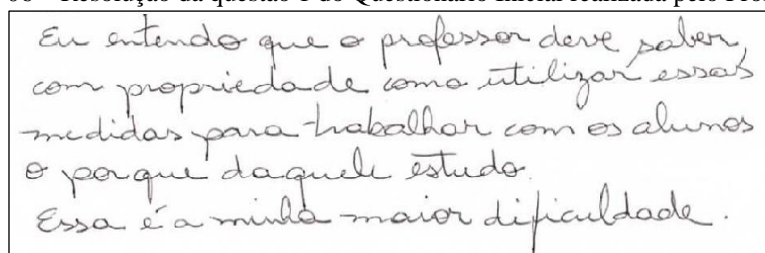 Resolução da questão 1 do Questionário Inicial realizada pelo
Eu entendo que o professor deve saber,
com propriedade como utilizar essas
medidas para trabalhar com os alunos
o porque daquele estudo.
Essa é a minha maior dificuldade.